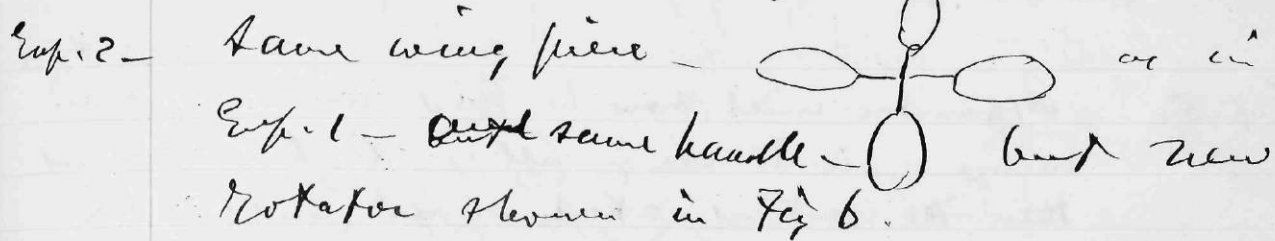 Exp. 2 - Same wing piece - as in
Exp. 1 - and same handle - but new
rotator shown in Fig 6.